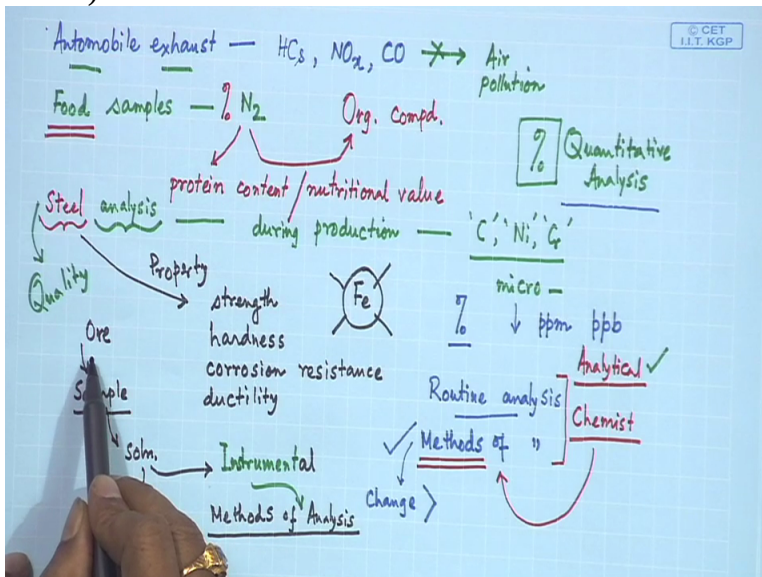 © CET
I.I.T. KGP
Automobile exhaust — HCs, NOx, CO → Air
pollution
Food samples — % N2
Org. compd.
% Quantitative
Analysis
protein content / nutritional value
Steel analysis — during production — 'C', 'Ni', 'Cr'
Quality
Property
strength
hardness
corrosion resistance
ductility
Fe
micro –
% ↓ ppm ppb
Ore
Sample
Soln. → Instrumental
Methods of Analysis
Routine analysis
Methods of "
Change >
Analytical ✓
Chemist